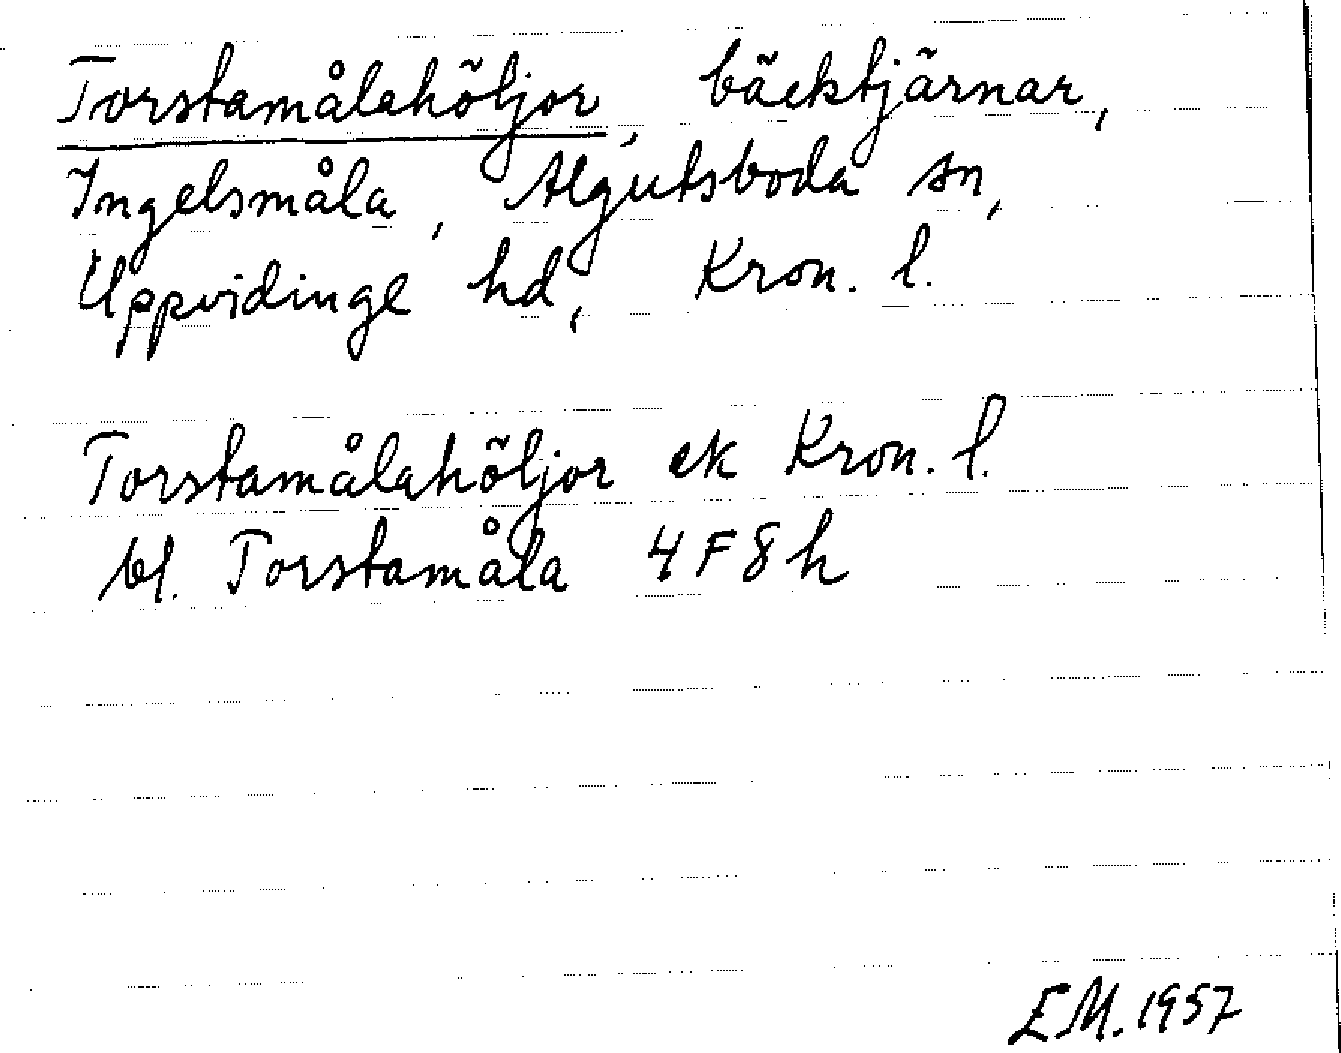 Torstamålahöljor, bäcktjärnar,
Ingelsmåla, Algutsboda sn,
Uppvidinge hd, Kron. l.
Torstamålahöljor ek Kron. l.
bl. Torstamåla 4F8h
E.M. 1957